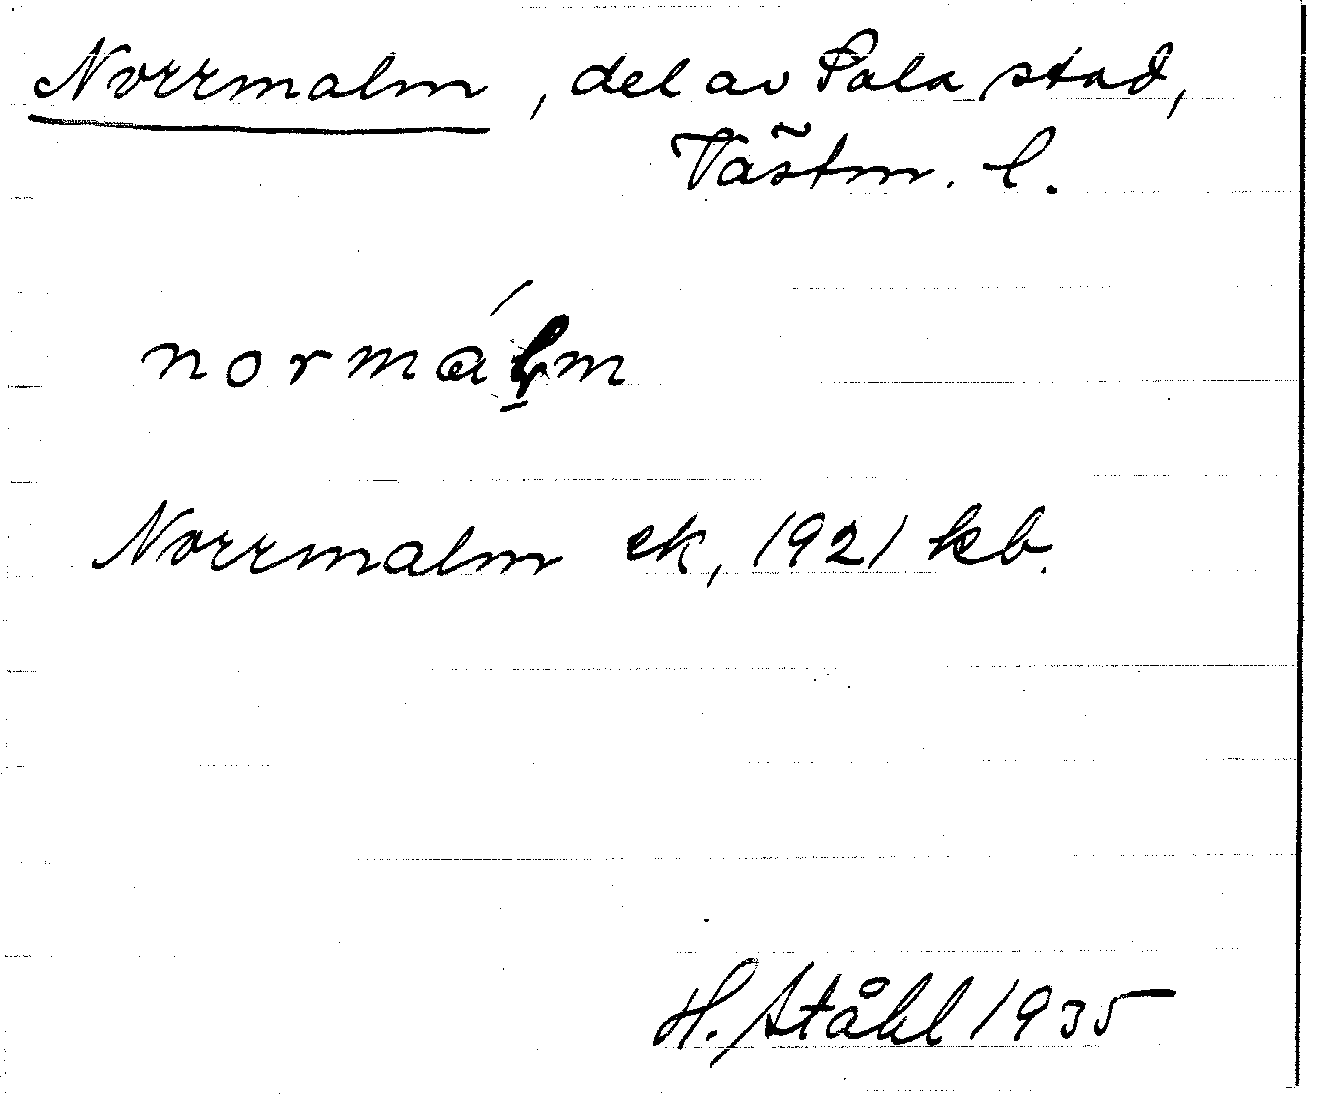 Norrmalm, del av Sala stad,
Västm. l.
normálm
Norrmalm ek, 1921 kb.
H. Ståhl 1935